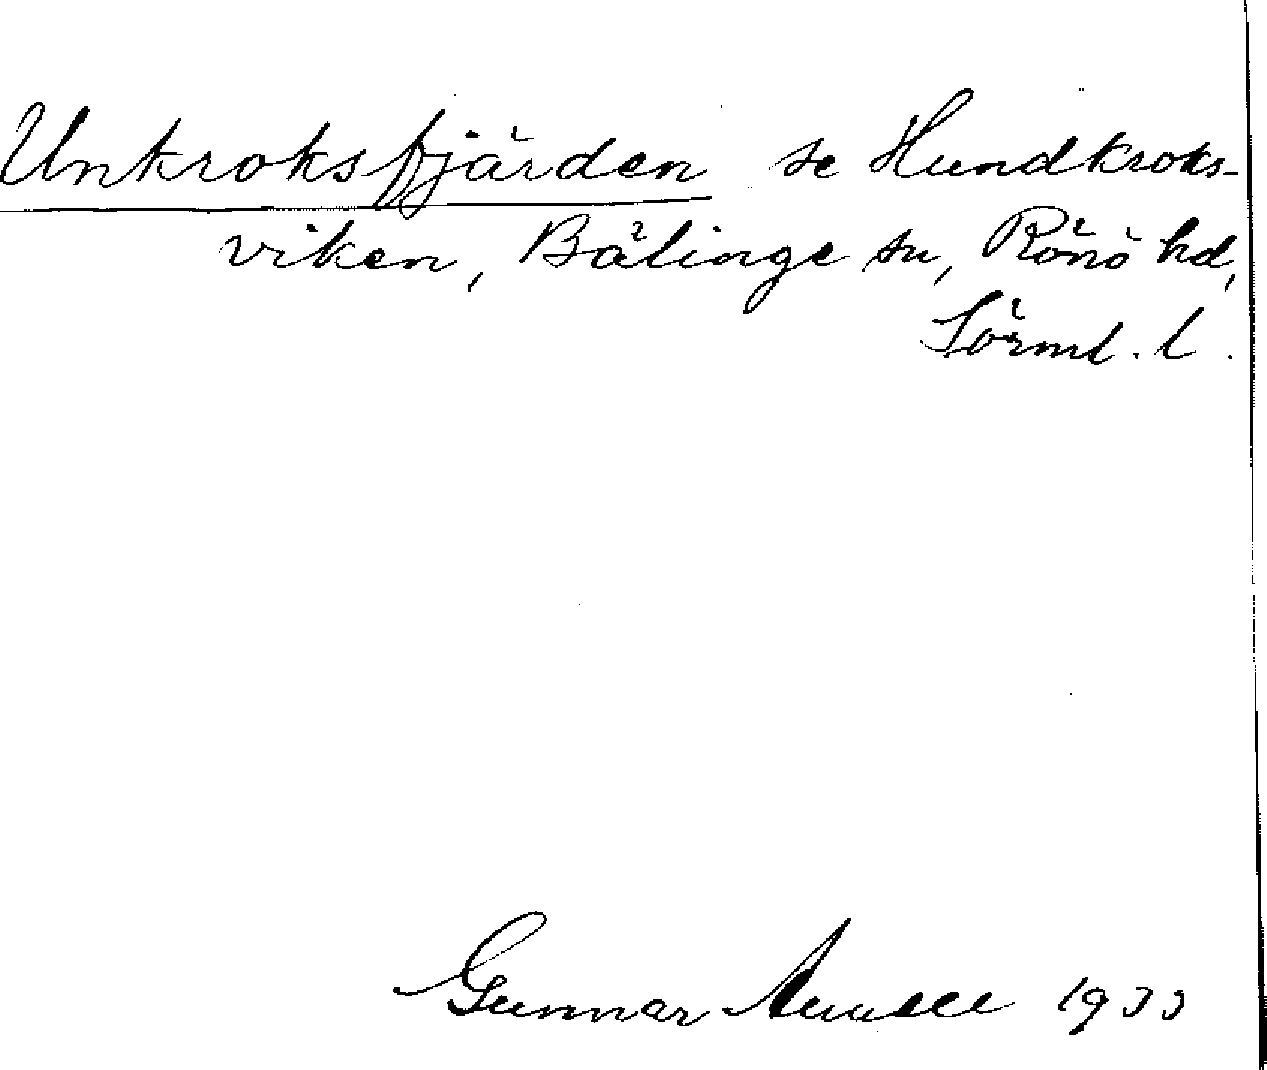 Unkroksfjärden se Hundkroks-
viken, Bälinge sn, Rönö hd,
Sörml. l.
Gunnar 1933